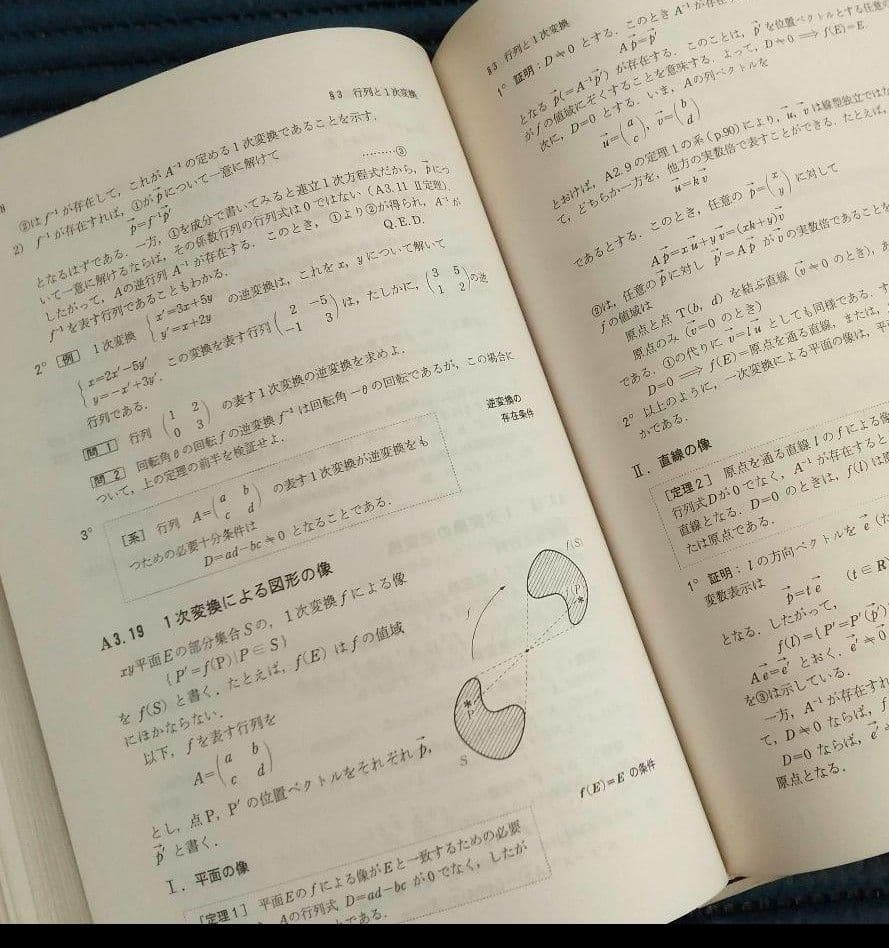 §3 行列と1次変換
②は f⁻¹ が存在して，これが A⁻¹ の定める1次変換であることを示す．
2) f⁻¹ が存在すれば，①が p⃗ について一意に解けて
p⃗=f⁻¹p⃗′ ………③
となるはずである．一方，①を成分で書いてみると連立1次方程式だから，p⃗につ
いて一意に解けるならば，その係数行列の行列式は0ではない（A3.11 Ⅱ定理）．
したがって，Aの逆行列 A⁻¹ が存在する．このとき，①より②が得られ，A⁻¹が
f⁻¹を表す行列であることもわかる． Q.E.D.
2° [例] 1次変換 { x′=3x+5y
y′=x+2y の逆変換は，これを x，y について解いて
{ x=2x′−5y′
y=−x′+3y′. この変換を表す行列 ( 2 −5
−1 3 ) は，たしかに，( 3 5
1 2 )の逆
行列である．
[問 1] 行列 ( 1 2
0 3 ) の表す1次変換の逆変換を求めよ．
[問 2] 回転角 θ の回転 f の逆変換 f⁻¹ は回転角 −θ の回転であるが，この場合に
ついて，上の定理の前半を検証せよ．
逆変換の
存在条件
3° [系] 行列 A=( a b
c d ) の表す1次変換が逆変換をも
つための必要十分条件は
D=ad−bc≒0 となることである．
A3.19 1次変換による図形の像
xy平面Eの部分集合Sの，1次変換fによる像
{P′=f(P)|P∈S}
を f(S) と書く．たとえば，f(E) は f の値域
にほかならない．
以下，f を表す行列を
A=( a b
c d )
とし，点P，P′ の位置ベクトルをそれぞれ p⃗，
p⃗′ と書く．
f(S)
f
P
S
Ⅰ．平面の像
f(E)=E の条件
[定理1] 平面Eのfによる像がEと一致するための必要
Aの行列式 D=ad−bc が0でなく，したが
である．
§3 行列と1次変換
1° 証明：D≒0 とする．このとき A⁻¹ が存在
Ap⃗=p⃗′
となる p⃗(=A⁻¹p⃗′) が存在する．このことは，p⃗′を位置ベクトルとする任意の
がfの値域にぞくすることを意味する．よって，D≒0 ⟹ f(E)=E．
次に，D=0 とする．いま，Aの列ベクトルを
u⃗=( a
c ), v⃗=( b
d )
とおけば，A2.9の定理1の系(p.90)により，u⃗, v⃗ は線型独立ではな
て，どちらか一方を，他方の実数倍で表すことができる．たとえば，
u⃗=kv⃗
であるとする．このとき，任意の p⃗=( x
y ) に対して
Ap⃗=xu⃗+yv⃗=(xk+y)v⃗
②は，任意のp⃗に対し p⃗′=Ap⃗ がv⃗の実数倍であることを
fの値域は
原点と点 T(b, d) を結ぶ直線 (v⃗≒0 のとき)，あ
原点のみ (v⃗=0 のとき)
である．①の代りに v⃗=lu⃗ としても同様である．す
D=0 ⟹ f(E)=原点を通る直線，または，
2° 以上のように，一次変換による平面の像は，平
かである．
Ⅱ．直線の像
[定理2] 原点を通る直線 l の f による像
行列式Dが0でなく，A⁻¹ が存在すると
直線となる．D=0 のときは，f(l) は原
たは原点である．
1° 証明：l の方向ベクトルを e⃗ (た
変数表示は
p⃗=te⃗ (t∈R
となる．したがって，
f(l)={P′=P′(p⃗′)
Ae⃗=e⃗′ とおく．e⃗′≒0
を③は示している．
一方，A⁻¹ が存在すれ
て，D≒0 ならば，f
D=0 ならば，e⃗′
原点となる．